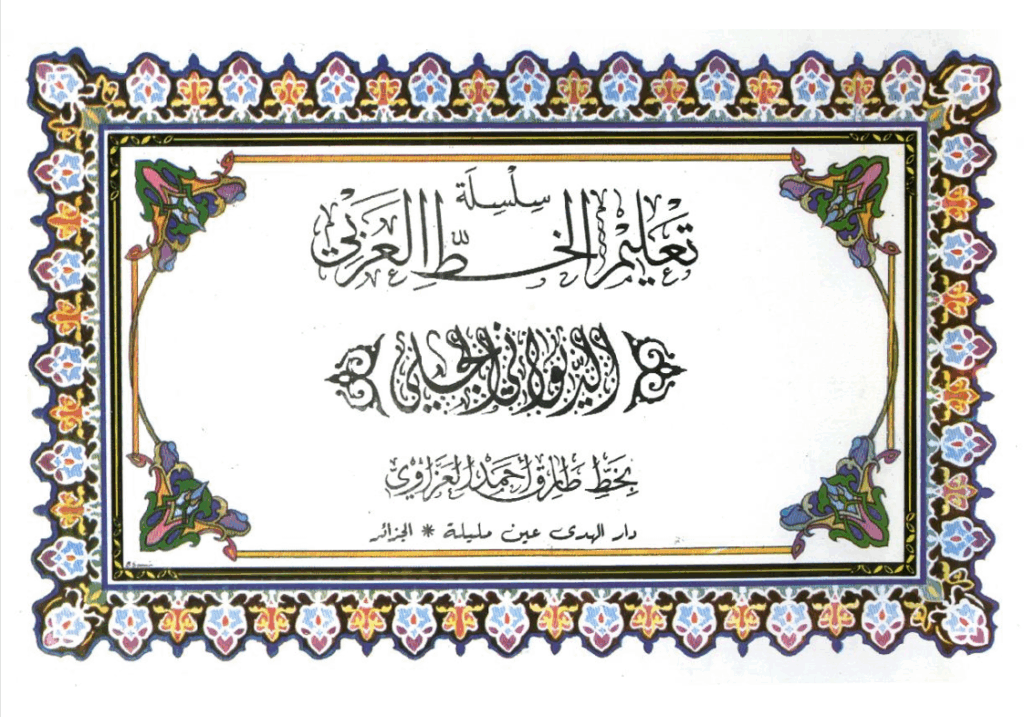 سلسلة
تعليم الخط العربي
الديواني الجلي
بخط طارق أحمد العزاوي
دار الهدى عين مليلة * الجزائر